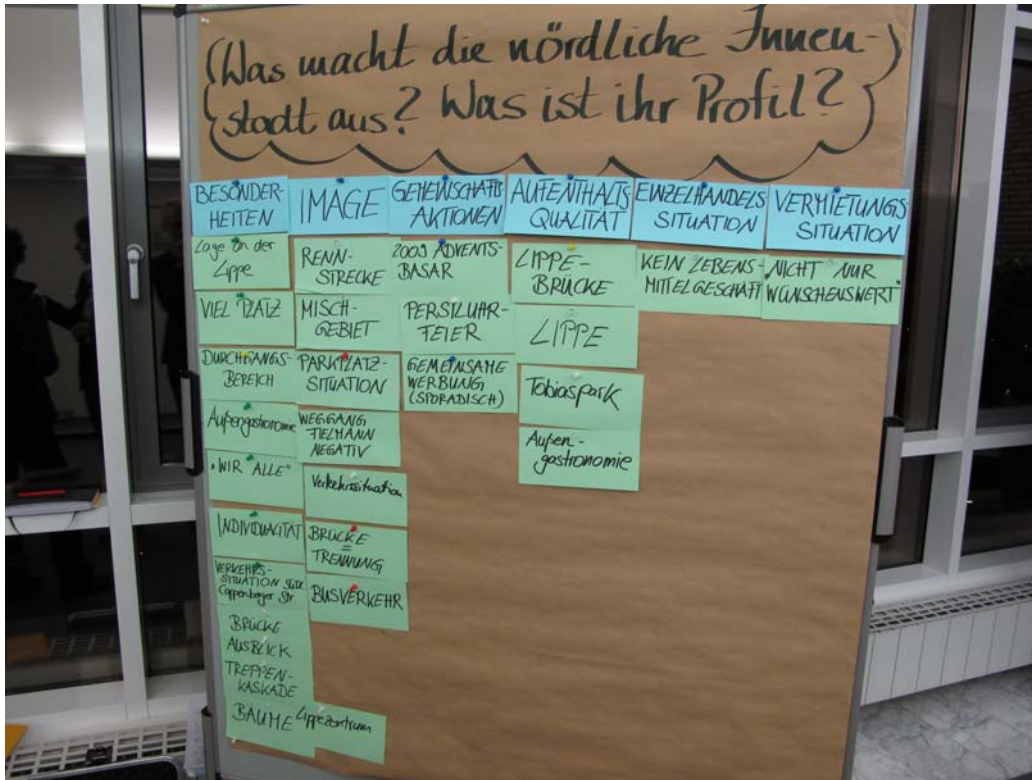 Was macht die nördliche Innen-
stadt aus? Was ist ihr Profil?
BESONDER-
HEITEN
Lage an der
Lippe
VIEL PLATZ
DURCHGANGS-
BEREICH
Außengastronomie
"WIR ALLE"
INDIVIDUALITÄT
VERKEHRS-
SITUATION SÜDL.
Cappenberger Str.
BRÜCKE
AUSBLICK
TREPPEN-
KASKADE
BÄUME
Lippezentrum
IMAGE
RENN-
STRECKE
MISCH-
GEBIET
PARKPLATZ-
SITUATION
WEGGANG
TIELMANN
NEGATIV
Verkehrssituation
BRÜCKE
=
TRENNUNG
BUSVERKEHR
GEMEINSCHAFTS
AKTIONEN
2009 ADVENTS-
BASAR
PERSILUHR-
FEIER
GEMEINSAME
WERBUNG
(SPORADISCH)
AUFENTHALTS
QUALITÄT
LIPPE-
BRÜCKE
LIPPE
Tobiaspark
Außen-
gastronomie
EINZELHANDELS
SITUATION
KEIN LEBENS-
MITTELGESCHÄFT
VERMIETUNGS-
SITUATION
"NICHT NUR
WÜNSCHENSWERT"